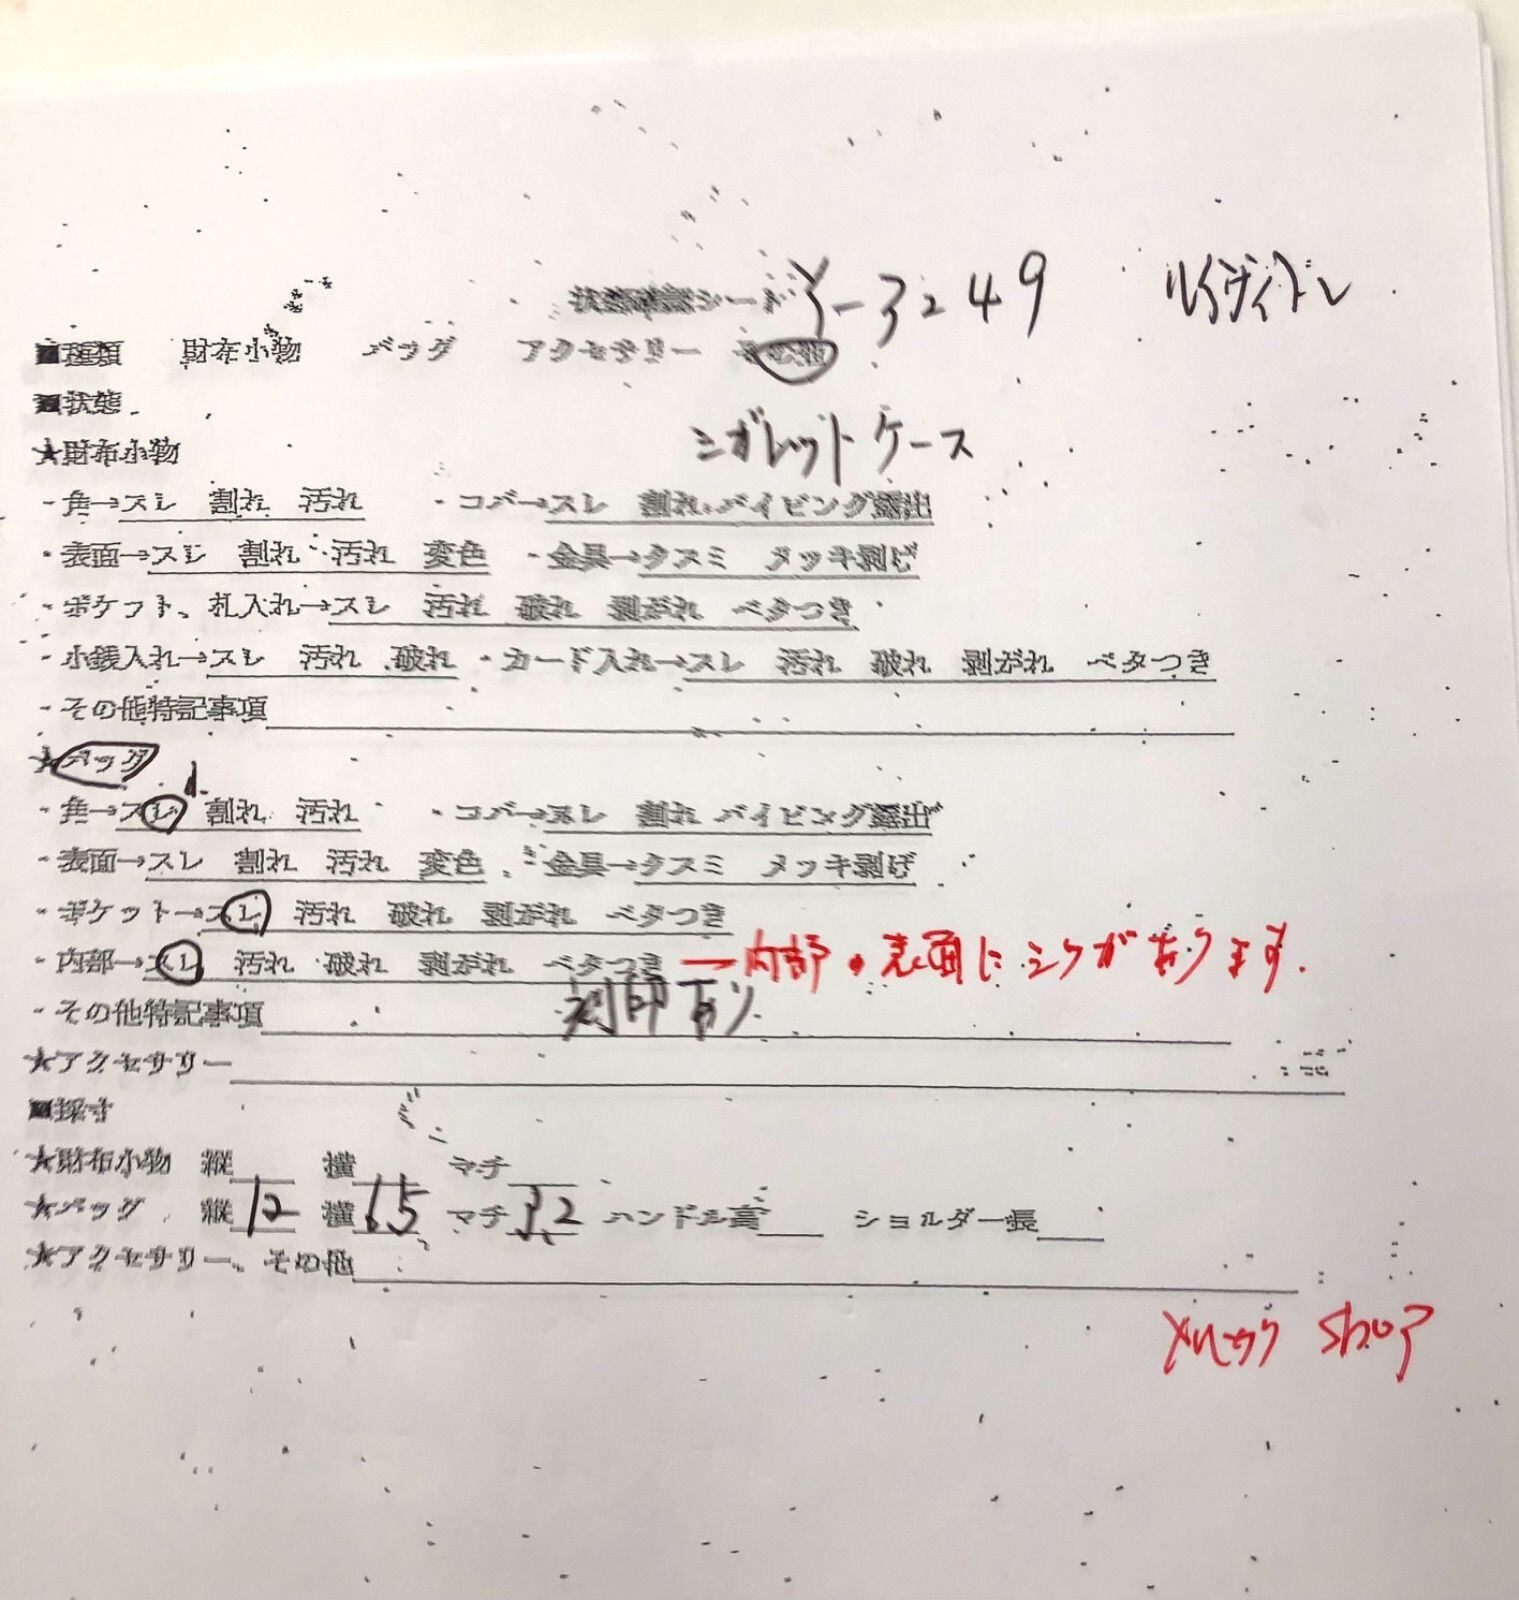 状態確認シート Y-3249 ルイヴィトン
■種類 財布小物 バッグ アクセサリー その他
■状態
シガレットケース
★財布小物
・角→スレ 割れ 汚れ ・コバ→スレ 割れ パイピング露出
・表面→スレ 割れ 汚れ 変色 ・金具→クスミ メッキ剥げ
・ポケット、札入れ→スレ 汚れ 破れ 剥がれ ベタつき
・小銭入れ→スレ 汚れ 破れ ・カード入れ→スレ 汚れ 破れ 剥がれ ベタつき
・その他特記事項
★バッグ
・角→スレ 割れ 汚れ ・コバ→スレ 割れ パイピング露出
・表面→スレ 割れ 汚れ 変色 ・金具→クスミ メッキ剥げ
・ポケット→スレ 汚れ 破れ 剥がれ ベタつき
・内部→スレ 汚れ 破れ 剥がれ ベタつき 内部・表面にシワがあります.
・その他特記事項 刻印有り
★アクセサリー
■採寸
★財布小物 縦 横 マチ
★バッグ 縦12 横6.5 マチ3.2 ハンドル高 ショルダー長
★アクセサリー、その他
メルカリ shop